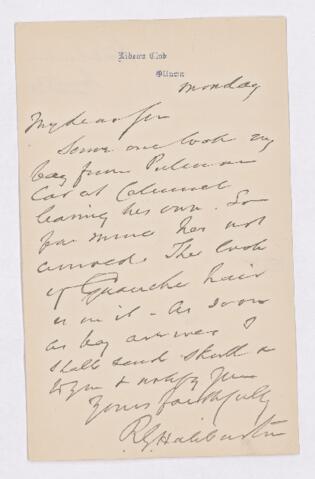 Rideau Club
Ottawa
Monday
My dear Sir
Some one took my
bag from Pulman
Car at Calumet
leaving his own. So
far mine has not
arrived. The lock
of Guanche hair
is in it - As soon
as bag arrives I
shall send skull to
you & notify you
Yours faithfully
R G Haliburton